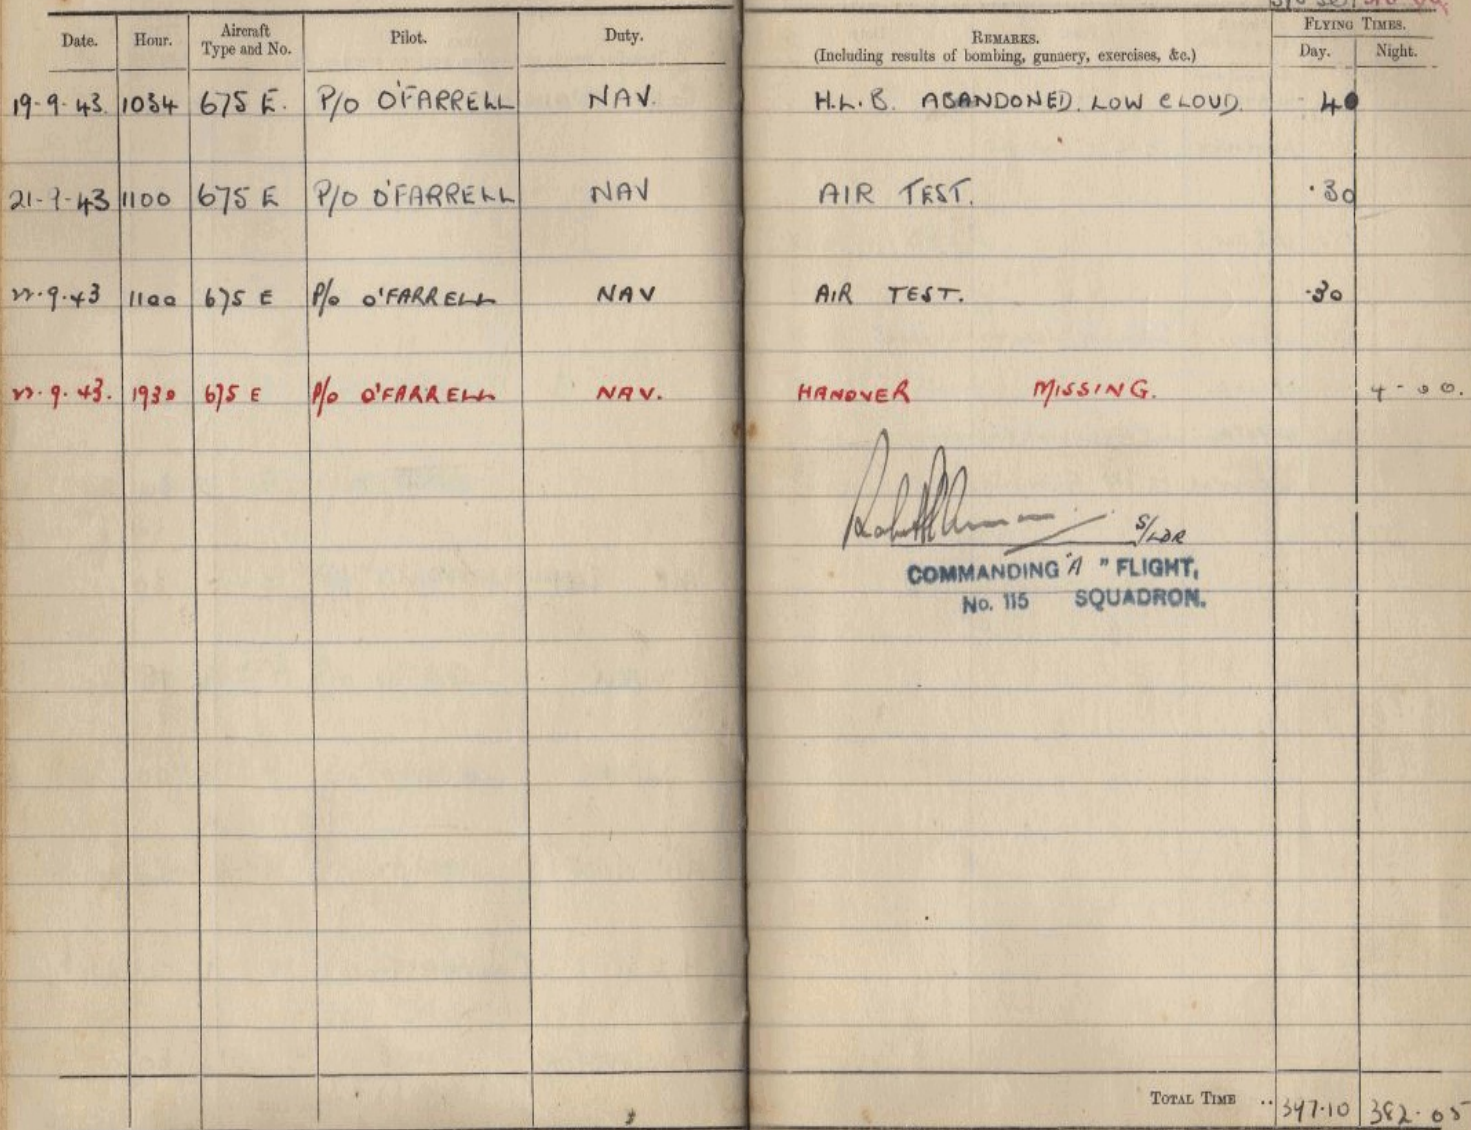 FLYING TIMES.
Date. Hour. Aircraft Type and No. Pilot. Duty. REMARKS. (Including results of bombing, gunnery, exercises, &c.) Day. Night.
19-9-43. 1034 675 E. P/O O'FARRELL NAV. H.L.B. ABANDONED. LOW CLOUD. 40
21-9-43 1100 675 E P/O O'FARRELL NAV AIR TEST. ·30
22·9·43 1100 675 E P/o O'FARRELL NAV AIR TEST. ·30
22·9·43. 1930 675 E P/o O'FARRELL NAV. HANOVER MISSING. 4-00.
S/LDR
COMMANDING "A" FLIGHT,
No. 115 SQUADRON.
TOTAL TIME .. 347·10 382·05